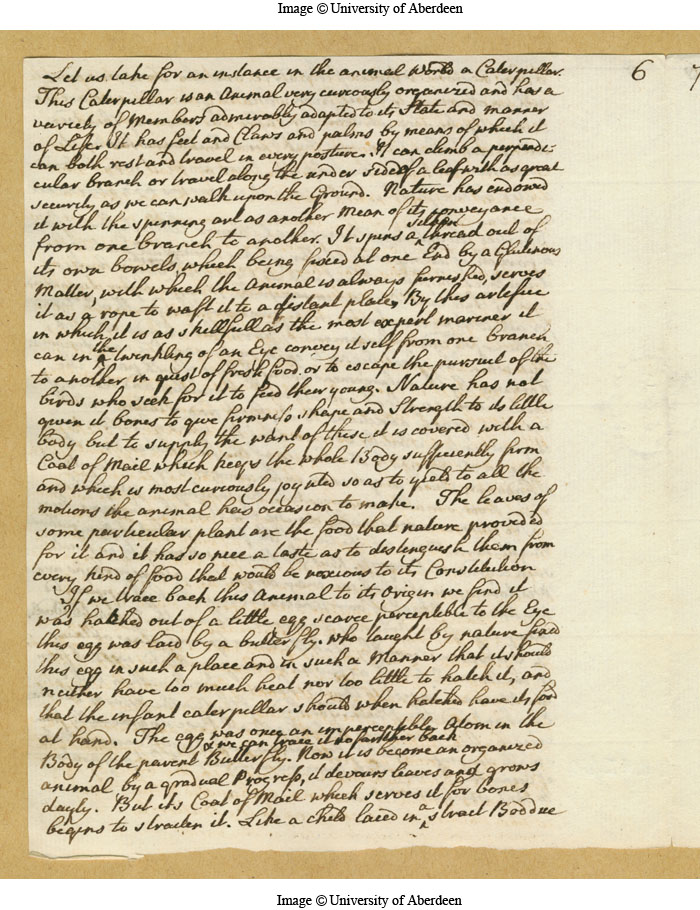 Image © University of Aberdeen
6
7
Let us take for an instance in the animal World a Caterpillar.
This Caterpillar is an Animal very curiously organized and has a
variety of Members admirably adapted to its State and manner
of Life. It has feet and Claws and palms by means of which it
can both rest and travel in every posture. It can climb a perpendi-
cular branch or travel along the under side of a leaf with as great
security as we can walk upon the Ground. Nature has endowed
it with the spinning art as another Mean of its conveyance
from one branch to another. It spins a silken thread out of
its own bowels, which being fixed at one End by a Glutinous
Matter, with which the Animal is always furnished, serves
it as a rope to waft it to a distant place, By this artifice
in which it is as skillfull as the most expert mariner it
can in the twinkling of an Eye convey itself from one branch
to another in quest of fresh food. or to escape the pursuit of the
birds who seek for it to feed their young. Nature has not
given it bones to give firmness shape and Strength to its little
body but to supply the want of these it is covered with a
Coat of Mail which keeps the whole Body sufficiently firm
and which is most curiously joynted so as to yield to all the
motions the animal has occasion to make. The leaves of
some particular plant are the food that nature provided
for it and it has so nice a taste as to distinguish them from
every kind of food that would be noxious to its Constitution
If we trace back this Animal to its Origin we find it
was hatched out of a little egg scarce perceptible to the Eye
this egg was laid by a butterfly. who taught by nature fixed
this egg in such a place and in such a Manner that it should
neither have too much heat nor too little to hatch it, and
that the infant caterpillar should when hatched have its food
at hand. The egg was once an imperceptible Atom in the
Body of the parent Butterfly. & we can trace it no further back Now it is become an organized
animal by a gradual Progress, it devours leaves and grows
dayly. But its Coat of Mail which serves it for bones
begins to straiten it. Like a child laced in a strait Boddice
Image © University of Aberdeen